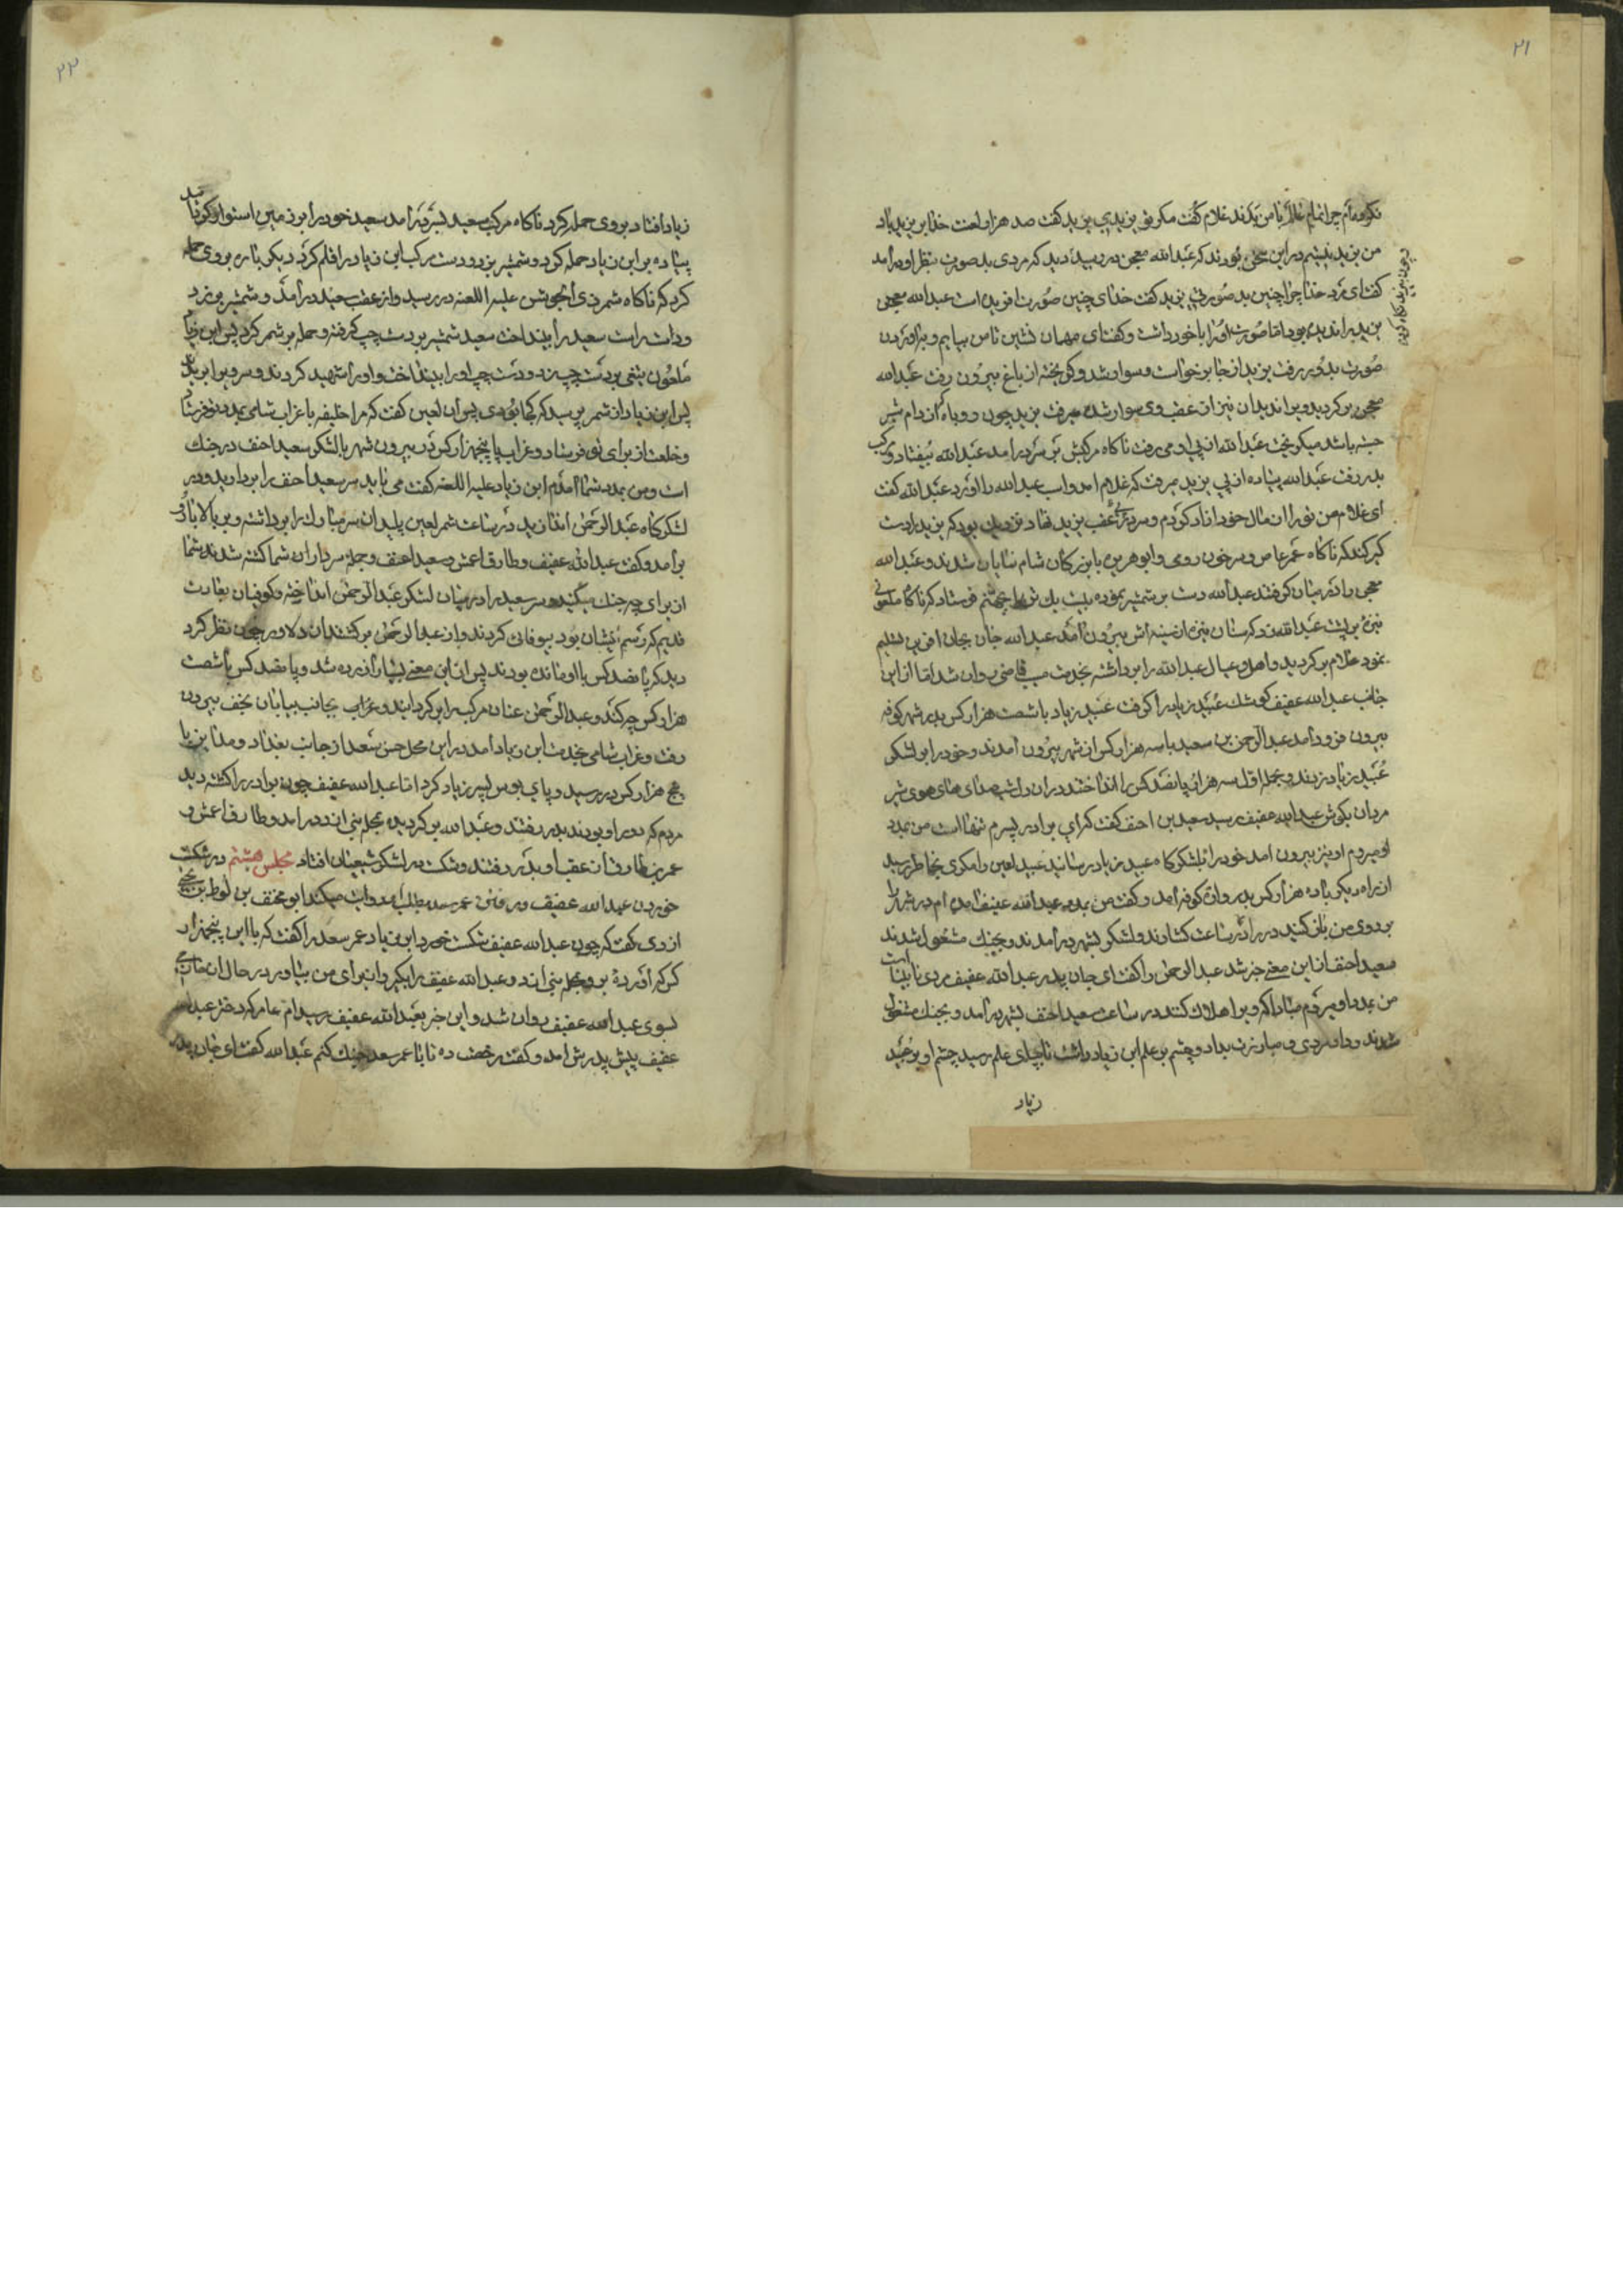 ۲۱
نکرده‌ام چرا غلام با من بد کند غلام گفت مکر تو یزیدی یزید گفت صد هزار لعنت خدا بر یزید باد
من یزید نیستم در این سخن بودند که عبدالله در رسید دید که مردی بد صورت بنظر او درآمد
گفت ای مرد خدا چرا چنین بد صورتی یزید گفت خدای چنین صورت افریده است عبدالله
یزید را ندیده بود اما صورت او را با خود داشت و گفت ای مهمان بنشین تا من بیایم و باوردن
صورت بدر رفت یزید از جا برخواست و سوار شد و گریخته از باغ بیرون رفت عبدالله
برکردید ویرا ندید آن نیز از عقب وی سوار شده میرفت یزید چون روباه که از دام شیر
جسته باشد میکریخت عبدالله از پی او می رفت ناکاه مرکبش بسر درامد عبدالله بیفتاد و مرکب
بدر رفت عبدالله پیاده از پی یزید میرفت که غلام امد و اسب عبدالله را اورد عبدالله گفت
ای غلام من تو را از مال خود ازاد کردم و سر در عقب یزید نهاد نزدیک بود که یزید را دست
گیر کند که ناکاه عمر عاص و سرخون رومی و ابوهریره با بزرکان شام نمایان شدند و عبدالله
را در میان کرفتند عبدالله دست بر شمشیر نموده بیست یک تن را بجهنم فرستاد که ناکاه ملعونی
نیزه بر پشت عبدالله زد که سنان نیزه از سینه اش بیرون آمد عبدالله جان بجان افرین تسلیم
نمود غلام برکردید و اهل و عیال عبدالله را برداشته بخدمت مسیب قاضی روان شد اما از این
جانب عبدالله عفیف کوشک عبید زیاد را کرفت عبید زیاد با شصت هزار کس بدر شهر کوفه
بیرون فرود امد عبدالرحمن بن سعید با سه هزار کس از شهر بیرون آمدند و خود را بر لشکر
عبید زیاد زدند و بحمله اول سه هزار پانصد کس را انداختند در ان دل شب صدای های هوی شیر
مردان بکوش عبدالله عفیف رسید سعید بن احنف گفت که ای برادر پسرم تنها است من بمدد
او میروم او نیز بیرون امد خود را بلشکرکاه عبید زیاد رسانید عبید لعین را مکری بخاطر رسید
از راه دیکر با ده هزار کس بدروازه کوفه آمد و گفت من بمدد عبدالله عفیف آمده ام در شهر را
بروی من باز کنید در را در ساعت کشادند و لشکر بشهر در آمدند و بجنک مشغول شدند
سعید احنف از این معنی خبر شد عبدالرحمن را گفت ای جان پدر عبدالله عفیف مردی نابینا است
من بمدد او میروم مبادا که ویرا هلاک کنند در ساعت سعید احنف بشهر در آمد و بجنک مشغول
شدند و داد مردی و مبارزت بداد و چشم بر علم ابن زیاد داشت تا بپای علم رسید چشم او بر عبید
زیاد
۲۲
زیاد افتاد بروی حمله کرد ناکاه مرکب سعید بسر در آمد سعید خود را بر زمین استوار کرد
پیاده بر ابن زیاد حمله کرد و شمشیر بزد و دست مرکب ابن زیاد را قلم کرد دیکر باره بروی حمله
کرد که ناکاه شمر ذی الجوشن علیه اللعنه در رسید و از عقب سعید در آمد و شمشیر بزد
و دست راست سعید را بینداخت سعید شمشیر بر دست چپ کرفته و حمله بر شمر کرد پس ابن زیاد
ملعون تیغی بر دست چپ زد و دست چپ او را بینداخت و او را شهید کردند و سر ویرا بریدند
پس ابن زیاد از شمر پرسید که کجا بودی پس ان لعین گفت که مرا خلیفه با غراب شامی بمدد تو فرستاد
و خلعت از برای تو فرستاد و غراب با پنجهزار کس در بیرون شهر با لشکر سعید احنف در جنک
است و من بمدد شما آمدم ابن زیاد علیه اللعنه گفت می باید سر سعید احنف را بردارید و در
لشکرکاه عبدالرحمن اندازید در ساعت شمر لعین پلید ان سر مبارک را برداشته و بر بالا
برآمد و گفت عبدالله عفیف و طارق اعمش و سعید احنف و جمله سرداران شما کشته شدند شما
از برای چه جنک میکنید سر سعید را در میان لشکر عبدالرحمن انداخته و کوفیان بعادت
قدیم که رسم ایشان بود بیوفائی کردند و از عبدالرحمن برکشتند ان دلاور چون نظر کرد
دید که پانصد کس با او مانده بودند پس از این معنی بسیار آزرده شد و پانصد کس با شصت
هزار کس چه کند و عبدالرحمن عنان مرکب را برکردانید و بجانب بیابان نجف بیرون
رفت و غراب شامی بخدمت ابن زیاد امد در این محل حسن سعد از جانب بغداد و مداین با
پنج هزار کس در رسید و پای بوس پسر زیاد کرد اما عبدالله عفیف چون برادر را کشته دید
مردم که دور او بودند بدر رفتند و عبدالله برکردیده بمحله بنی ازد درامد و طارق اعمش و
عمر بن طارق از عقب او بدر رفتند و شکست در لشکر شیعیان افتاد مجلس هشتم در شکست
خوردن عبدالله عفیف و رفتن عمر سعد بطلب او روایت میکند ابو مخنف بن لوط بن یحیی
ازدی گفت که چون عبدالله عفیف شکست خورد ابن زیاد عمر سعد را گفت که با این پنجهزار
کس که آورده برو بمحله بنی ازد و عبدالله عفیف را بکیر و از برای من بیاور در حال ان
بسوی عبدالله عفیف روان شد و این خبر بعبدالله عفیف رسید ام عامر که دختر عبدالله
عفیف پیش پدرش امد و گفت رخصت ده تا با عمر سعد جنک کنم عبدالله گفت ای جان پدر